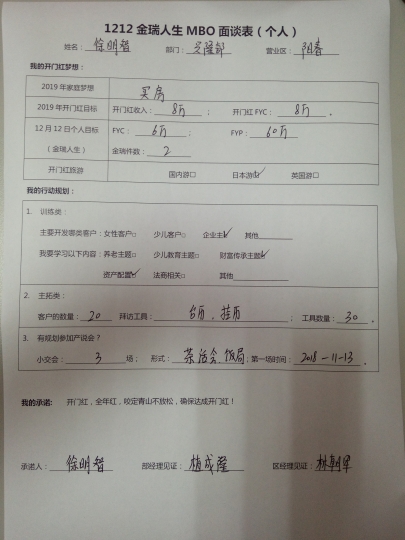 1212金瑞人生MBO面谈表（个人）
姓名：徐明智 部门：吴隆部 营业区：阳春
我的开门红梦想：
2019年家庭梦想 买房
2019年开门红目标 开门红收入：8万； 开门红FYC：8万.
12月12日个人目标 FYC：6万； FYP：60万
（金瑞人生） 金瑞件数：2
开门红旅游 国内游□ 日本游☑ 英国游□
我的行动规划：
1. 训练类：
主要开发哪类客户：女性客户□ 少儿客户□ 企业主☑ 其他
我要学习以下内容：养老主题□ 少儿教育主题□ 财富传承主题☑
资产配置☑ 法商相关□ 其他
2. 主拓类：
客户的数量：20 拜访工具：台历、挂历； 工具数量：30.
3. 有规划参加产说会？
小交会：3场； 形式：茶话会、饭局；第一场时间：2018-11-13.
我的承诺： 开门红，全年红，咬定青山不放松，确保达成开门红！
承诺人：徐明智 部经理见证：植成隆 区经理见证：林朝军